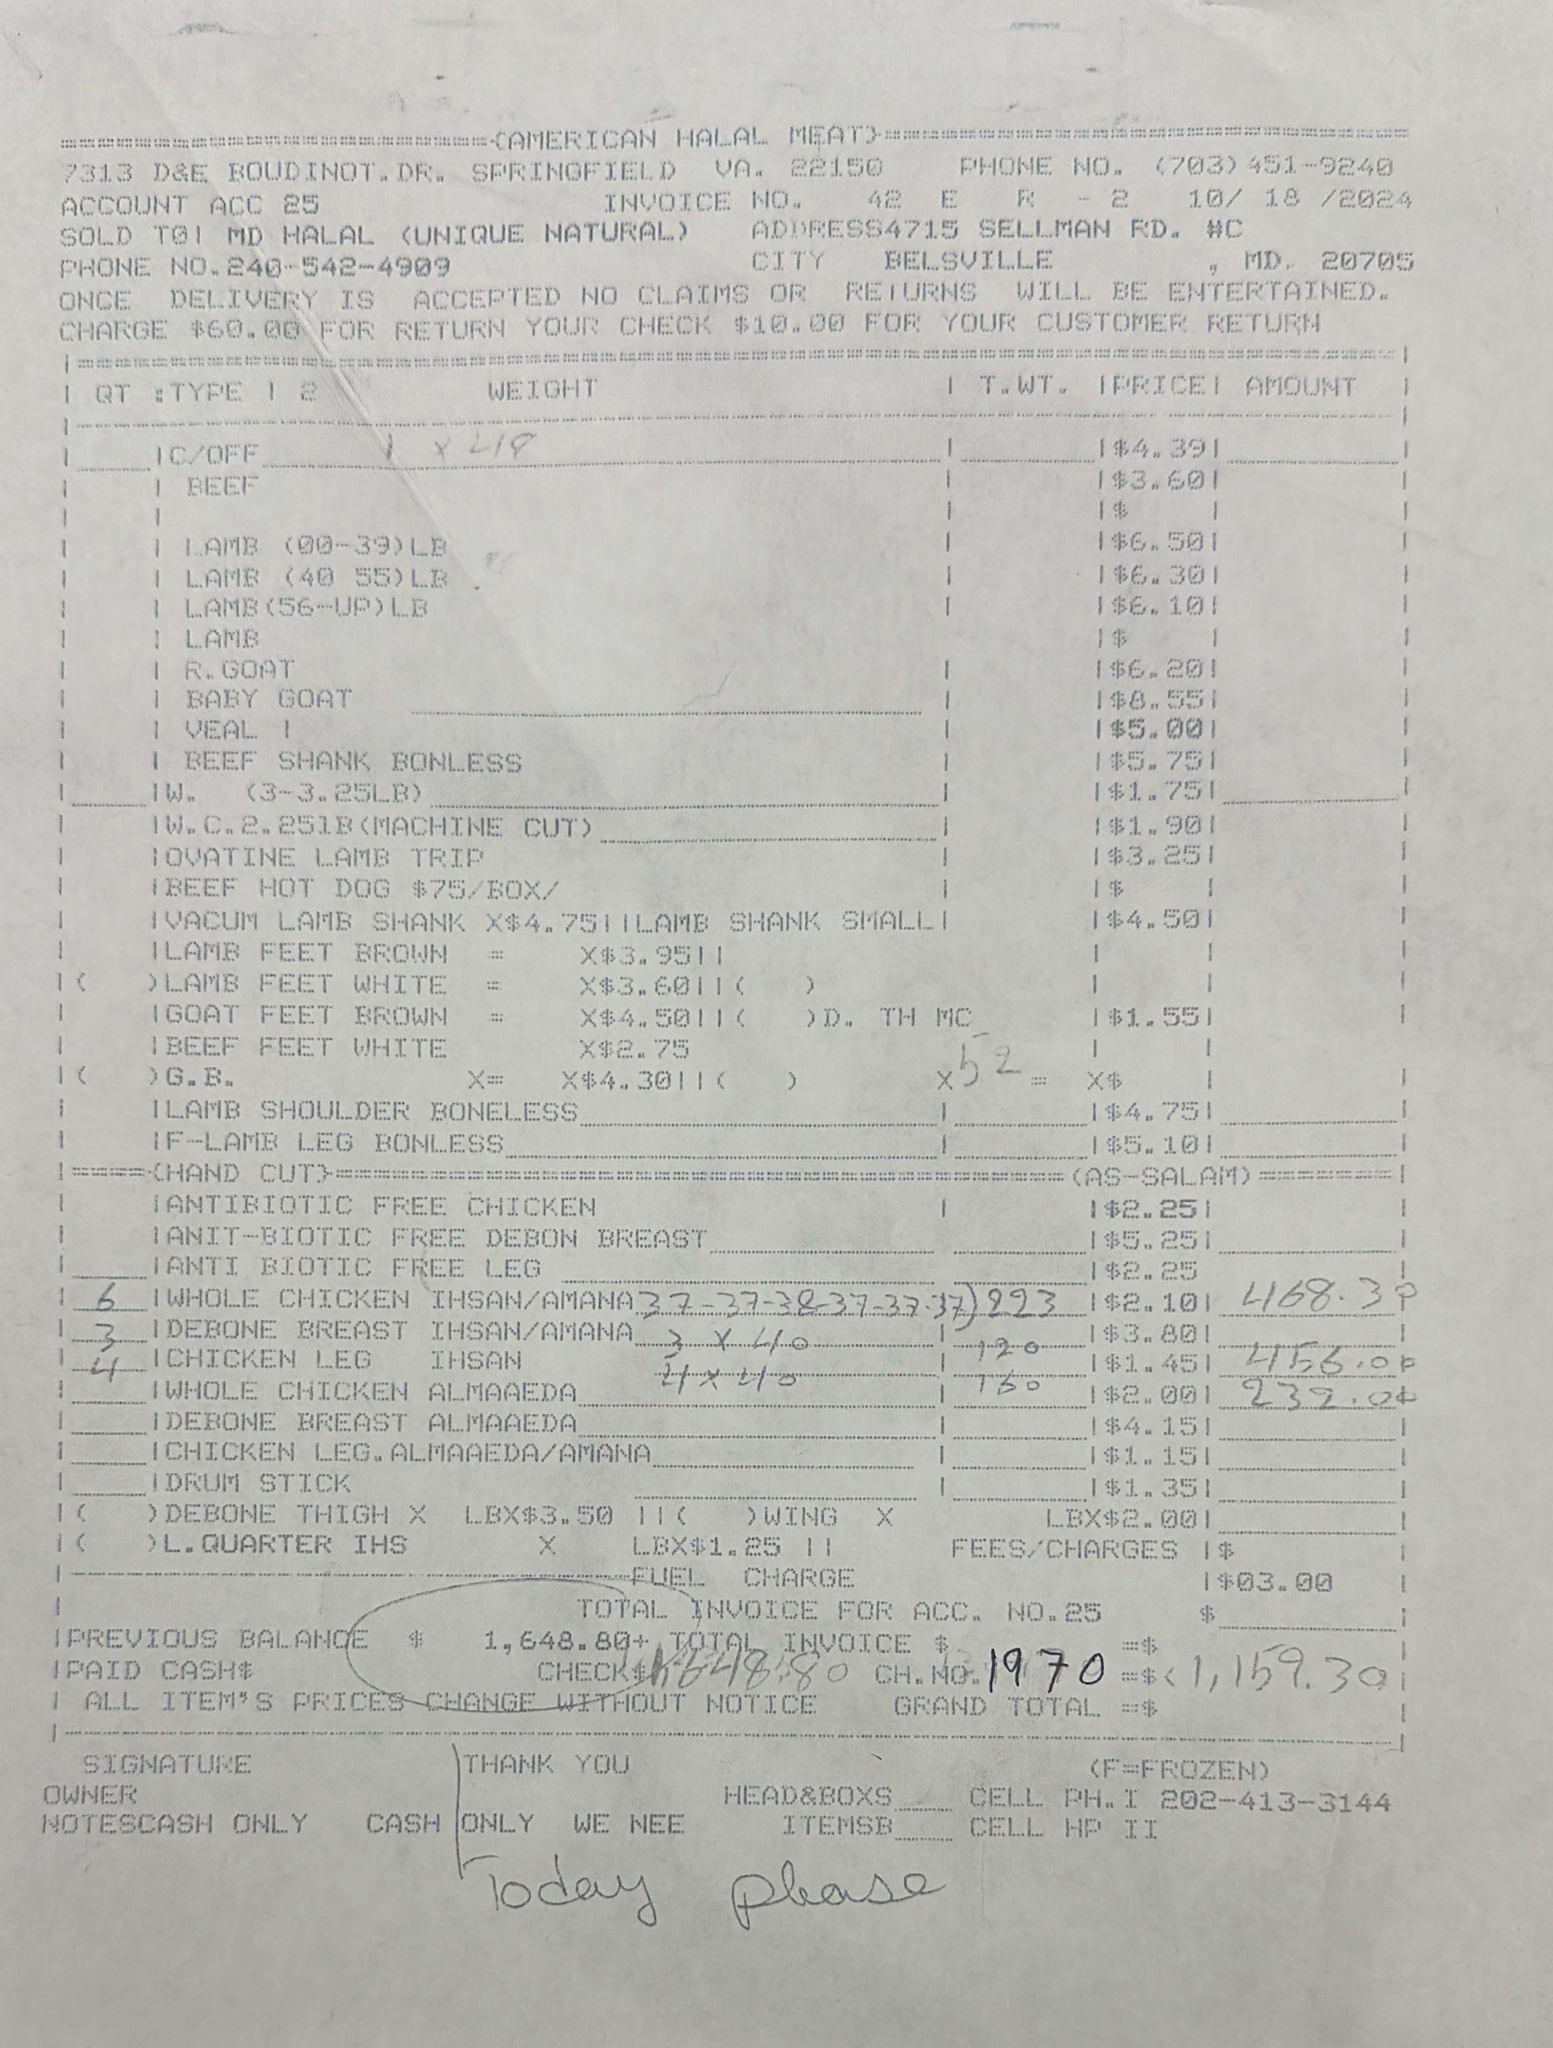 {AMERICAN HALAL MEAT}
7313 D&E BOUDINOT.DR. SPRINGFIELD VA. 22150 PHONE NO. (703)451-9240
ACCOUNT ACC 25 INVOICE NO. 42 E R - 2 10/ 18 /2024
SOLD TO| MD HALAL (UNIQUE NATURAL) ADDRESS4715 SELLMAN RD. #C
PHONE NO.240-542-4909 CITY BELSVILLE , MD. 20705
ONCE DELIVERY IS ACCEPTED NO CLAIMS OR RETURNS WILL BE ENTERTAINED.
CHARGE $60.00 FOR RETURN YOUR CHECK $10.00 FOR YOUR CUSTOMER RETURN
| QT :TYPE | 2 WEIGHT | T.WT. |PRICE| AMOUNT |
|C/OFF 1 x 418 |$4.39|
| BEEF |$3.60|
|$ |
| LAMB (00-39)LB |$6.50|
| LAMB (40 55)LB |$6.30|
| LAMB(56-UP)LB |$6.10|
| LAMB |$ |
| R.GOAT |$6.20|
| BABY GOAT |$8.55|
| VEAL | |$5.00|
| BEEF SHANK BONLESS |$5.75|
|W. (3-3.25LB) |$1.75|
|W.C.2.25lB(MACHINE CUT) |$1.90|
|OVATINE LAMB TRIP |$3.25|
|BEEF HOT DOG $75/BOX/ |$ |
|VACUM LAMB SHANK X$4.75||LAMB SHANK SMALL| |$4.50|
|LAMB FEET BROWN = X$3.95||
|( )LAMB FEET WHITE = X$3.60||( )
|GOAT FEET BROWN = X$4.50||( )D. TH MC |$1.55|
|BEEF FEET WHITE X$2.75
|( )G.B. X= X$4.30||( ) X 52 = X$ |
|LAMB SHOULDER BONELESS |$4.75|
|F-LAMB LEG BONLESS |$5.10|
|=====(HAND CUT)=====(AS-SALAM)=======|
|ANTIBIOTIC FREE CHICKEN |$2.25|
|ANIT-BIOTIC FREE DEBON BREAST |$5.25|
|ANTI BIOTIC FREE LEG |$2.25
6 |WHOLE CHICKEN IHSAN/AMANA 37-37-38-37-37-37)223 |$2.10| 468.30
3 |DEBONE BREAST IHSAN/AMANA 3 x 40 120 |$3.80|
4 |CHICKEN LEG IHSAN 4 x 40 160 |$1.45| 456.00
|WHOLE CHICKEN ALMAAEDA |$2.00| 232.00
|DEBONE BREAST ALMAAEDA |$4.15|
|CHICKEN LEG.ALMAAEDA/AMANA |$1.15|
|DRUM STICK |$1.35|
|( )DEBONE THIGH X LBX$3.50 ||( )WING X LBX$2.00|
|( )L.QUARTER IHS X LBX$1.25 || FEES/CHARGES |$
FUEL CHARGE |$03.00
TOTAL INVOICE FOR ACC. NO.25 $
|PREVIOUS BALANCE $ 1,648.80+ TOTAL INVOICE $ =$
|PAID CASH$ CHECK$ 1,648.80 CH.NO. 1970 =$< 1,159.30
| ALL ITEM'S PRICES CHANGE WITHOUT NOTICE GRAND TOTAL =$
SIGNATURE THANK YOU (F=FROZEN)
OWNER HEAD&BOXS CELL PH.I 202-413-3144
NOTESCASH ONLY CASH ONLY WE NEE ITEMSB CELL HP II
Today please